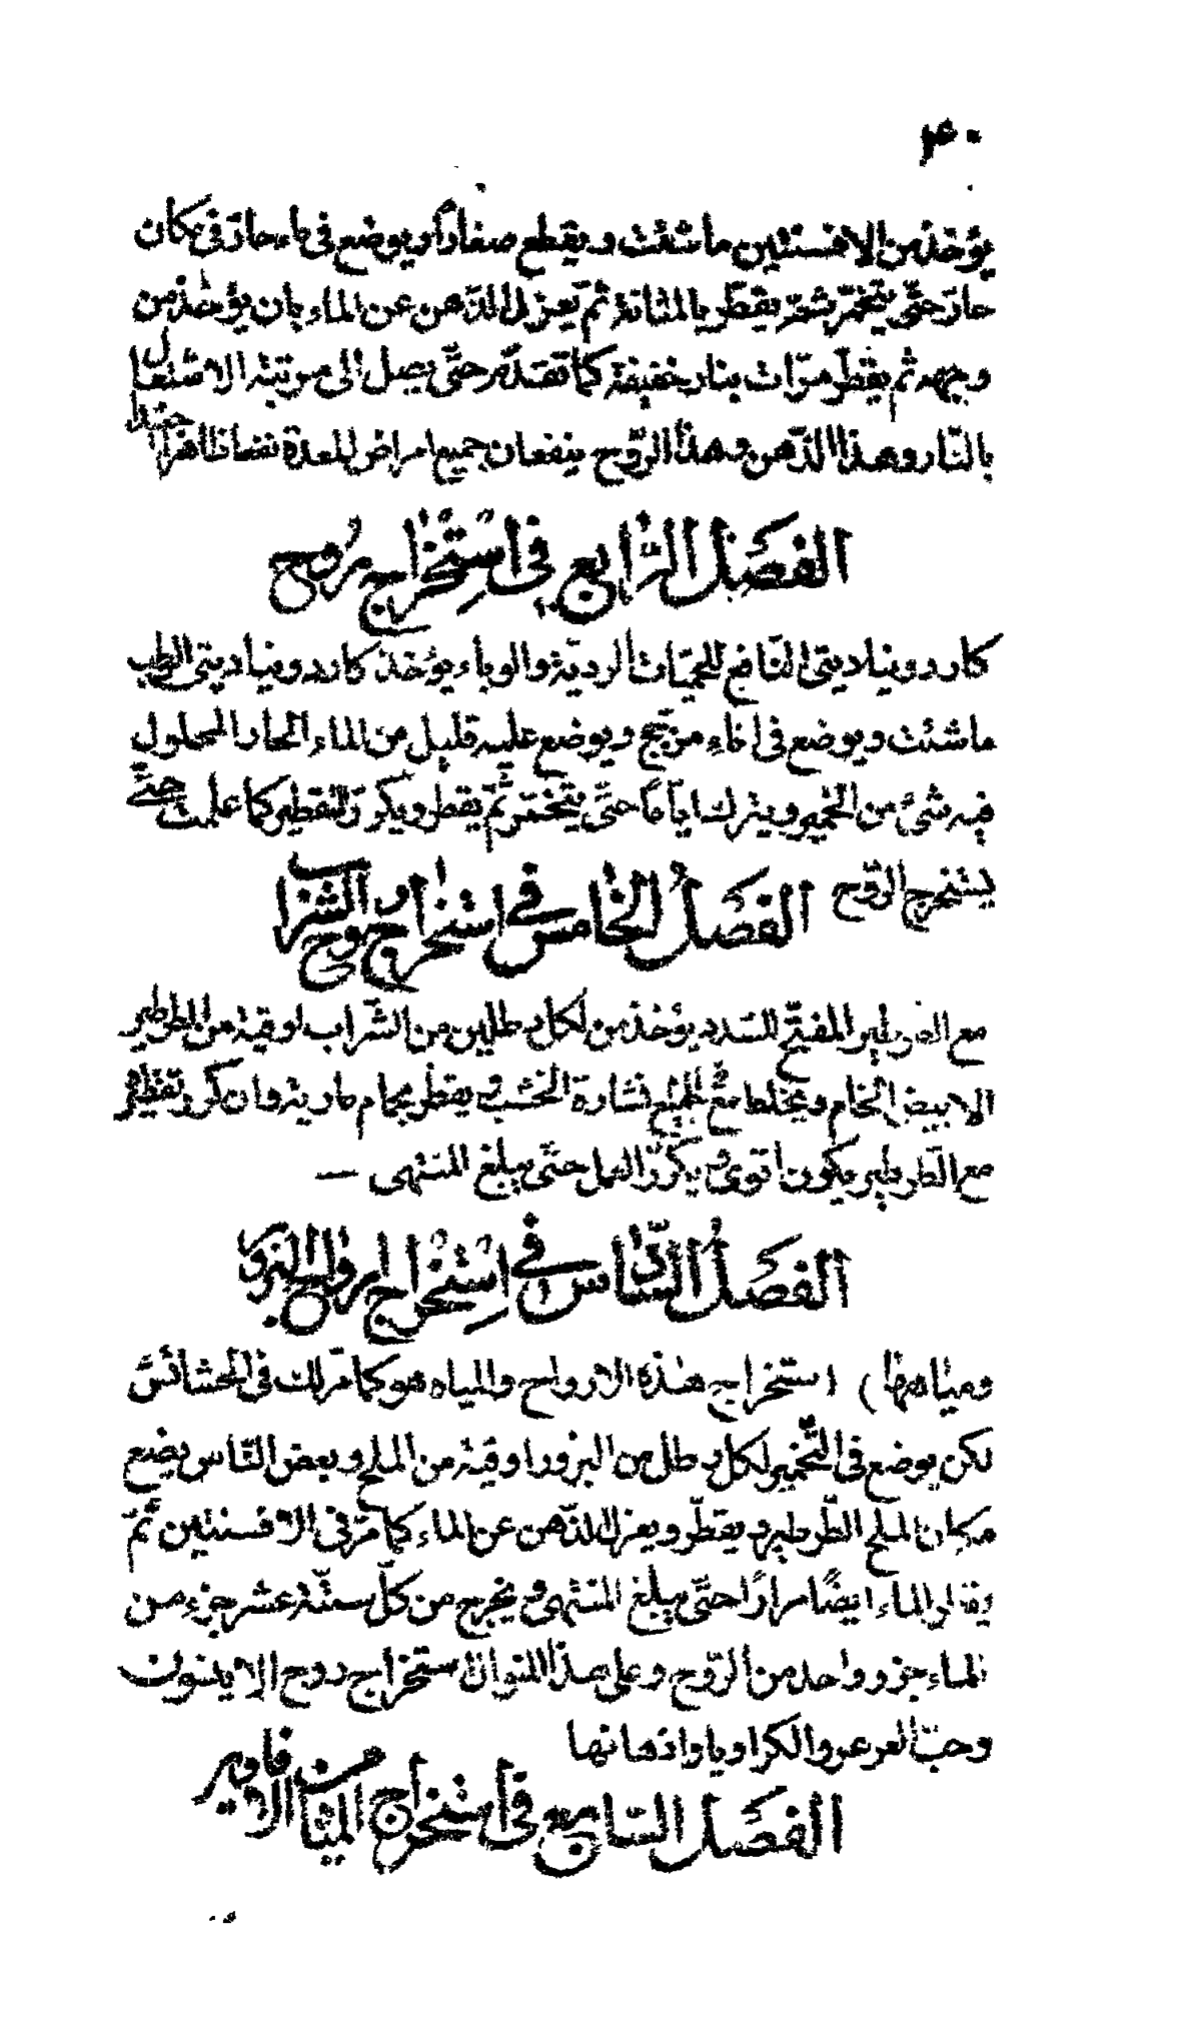 ۴۰
يؤخذ من الافسنتين ما شئت ويقطع صغاراً ويوضع فى ماء حار فى مكان
حارّ حتّى يتخمّر ثمّ يقطّر بالمثانة ثمّ يعزل الدّهن عن الماء بان يؤخذ من
وجهه ثم يقطّر مرّات بنار خفيفة كما تقدّم حتّى يصل الى مرتبة الاشتعال
بالنّار وهذا الدّهن وهذا الرّوح ينفعان جميع امراض المعدة نفعا ظاهراً جيّدا
الفصل الرّابع فى استخراج روح
كاردوبنياديتى النّافع للحميّات الرديّة والوباء يؤخذ كاردوبنياديتى الرطب
ما شئت ويوضع فى اناء مزجّج ويوضع عليه قليل من الماء الحار المحلول
فيه شئ من الخمير ويترك ايّامًا حتّى يتخمّر ثمّ يقطّر ويكرّر التقطير كما علمت حتّى
يستخرج الرّوح
الفصل الخامس فى استخراج روح الشراب
مع الطرطير المفتّح للسّدد يؤخذ من لكل رطلين من الشّراب اوقية من الطرطير
الابيض الخام ويخلط مع الجميع نشارة الخشب ويقطّر بحمام مارية وان كرر تقطيره
مع الطّرطير يكون اقوى ويكرّر العمل حتّى يبلغ المنتهى —
الفصل السّادس فى استخراج ارواح البزور
ومياهها ) استخراج هذه الارواح والمياه هو كما مرّ لك فى الحشائش
لكن يوضع فى التّخمير لكل رطل من البزور اوقية من الملح وبعض النّاس يضع
مكان الملح الطّرطير ويقطّر ويعزل الدّهن عن الماء كما مرّ فى الافسنتين ثمّ
يقطر الماء ايضًا مرارًا حتّى يبلغ المنتهى ويخرج من كلّ ستّة عشر جزء من
الماء جزو واحد من الرّوح وعلى هذا المنوال استخراج روح الانيسون
وحبّ العرعر والكراويا وادهانها
الفصل السّابع فى استخراج المياه من الافاوير